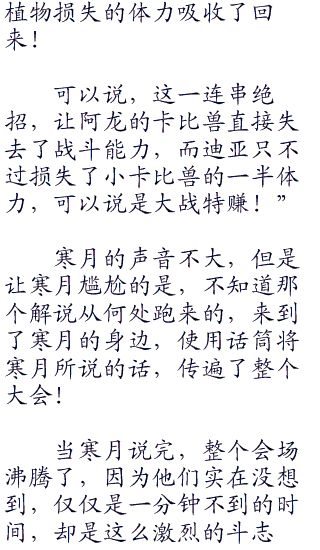 植物损失的体力吸收了回
来！
可以说，这一连串绝
招，让阿龙的卡比兽直接失
去了战斗能力，而迪亚只不
过损失了小卡比兽的一半体
力，可以说是大战特赚！”
寒月的声音不大，但是
让寒月尴尬的是，不知道那
个解说从何处跑来的，来到
了寒月的身边，使用话筒将
寒月所说的话，传遍了整个
大会！
当寒月说完，整个会场
沸腾了，因为他们实在没想
到，仅仅是一分钟不到的时
间，却是这么激烈的斗志